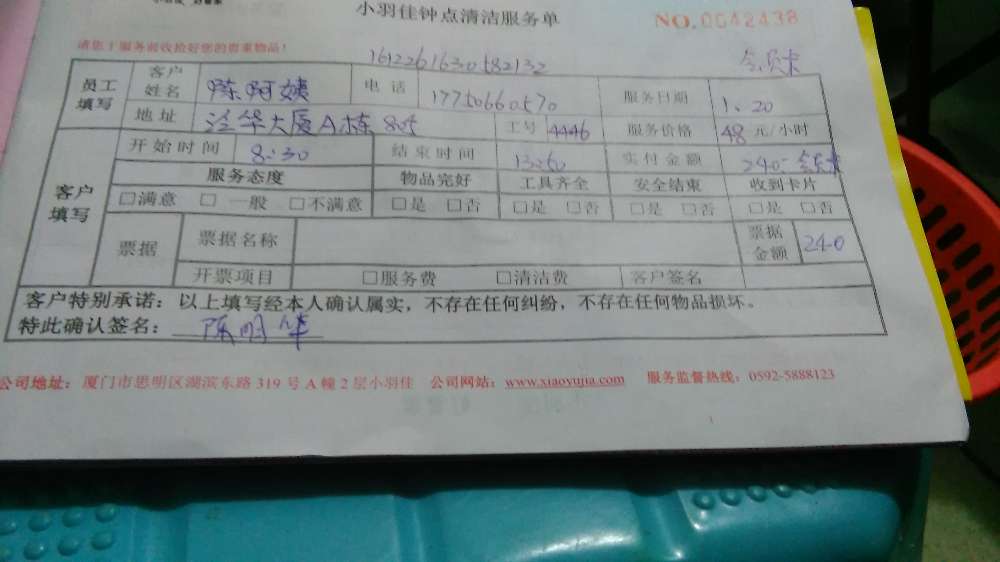 小羽佳钟点清洁服务单
NO.0042438
请您于服务前收拾好您的贵重物品!
1612261630582132 会员卡
员工填写 客户姓名 陈阿姨 电话 17750660570 服务日期 1、20
地址 A栋 805 工号 4446 服务价格 48 元/小时
客户填写 开始时间 8:30 结束时间 实付金额 240
服务态度 物品完好 工具齐全 安全结束 收到卡片
□满意 □一般 □不满意 □是 □否 □是 □否 □是 □否 □是 □否
票据 票据名称 票据金额 240
开票项目 □服务费 □清洁费 客户签名
客户特别承诺:以上填写经本人确认属实,不存在任何纠纷,不存在任何物品损坏。
特此确认签名: 陈明华
公司地址:厦门市思明区湖滨东路 319 号 A 幢 2 层小羽佳 公司网站:www.xiaoyujia.com 服务监督热线:0592-5888123